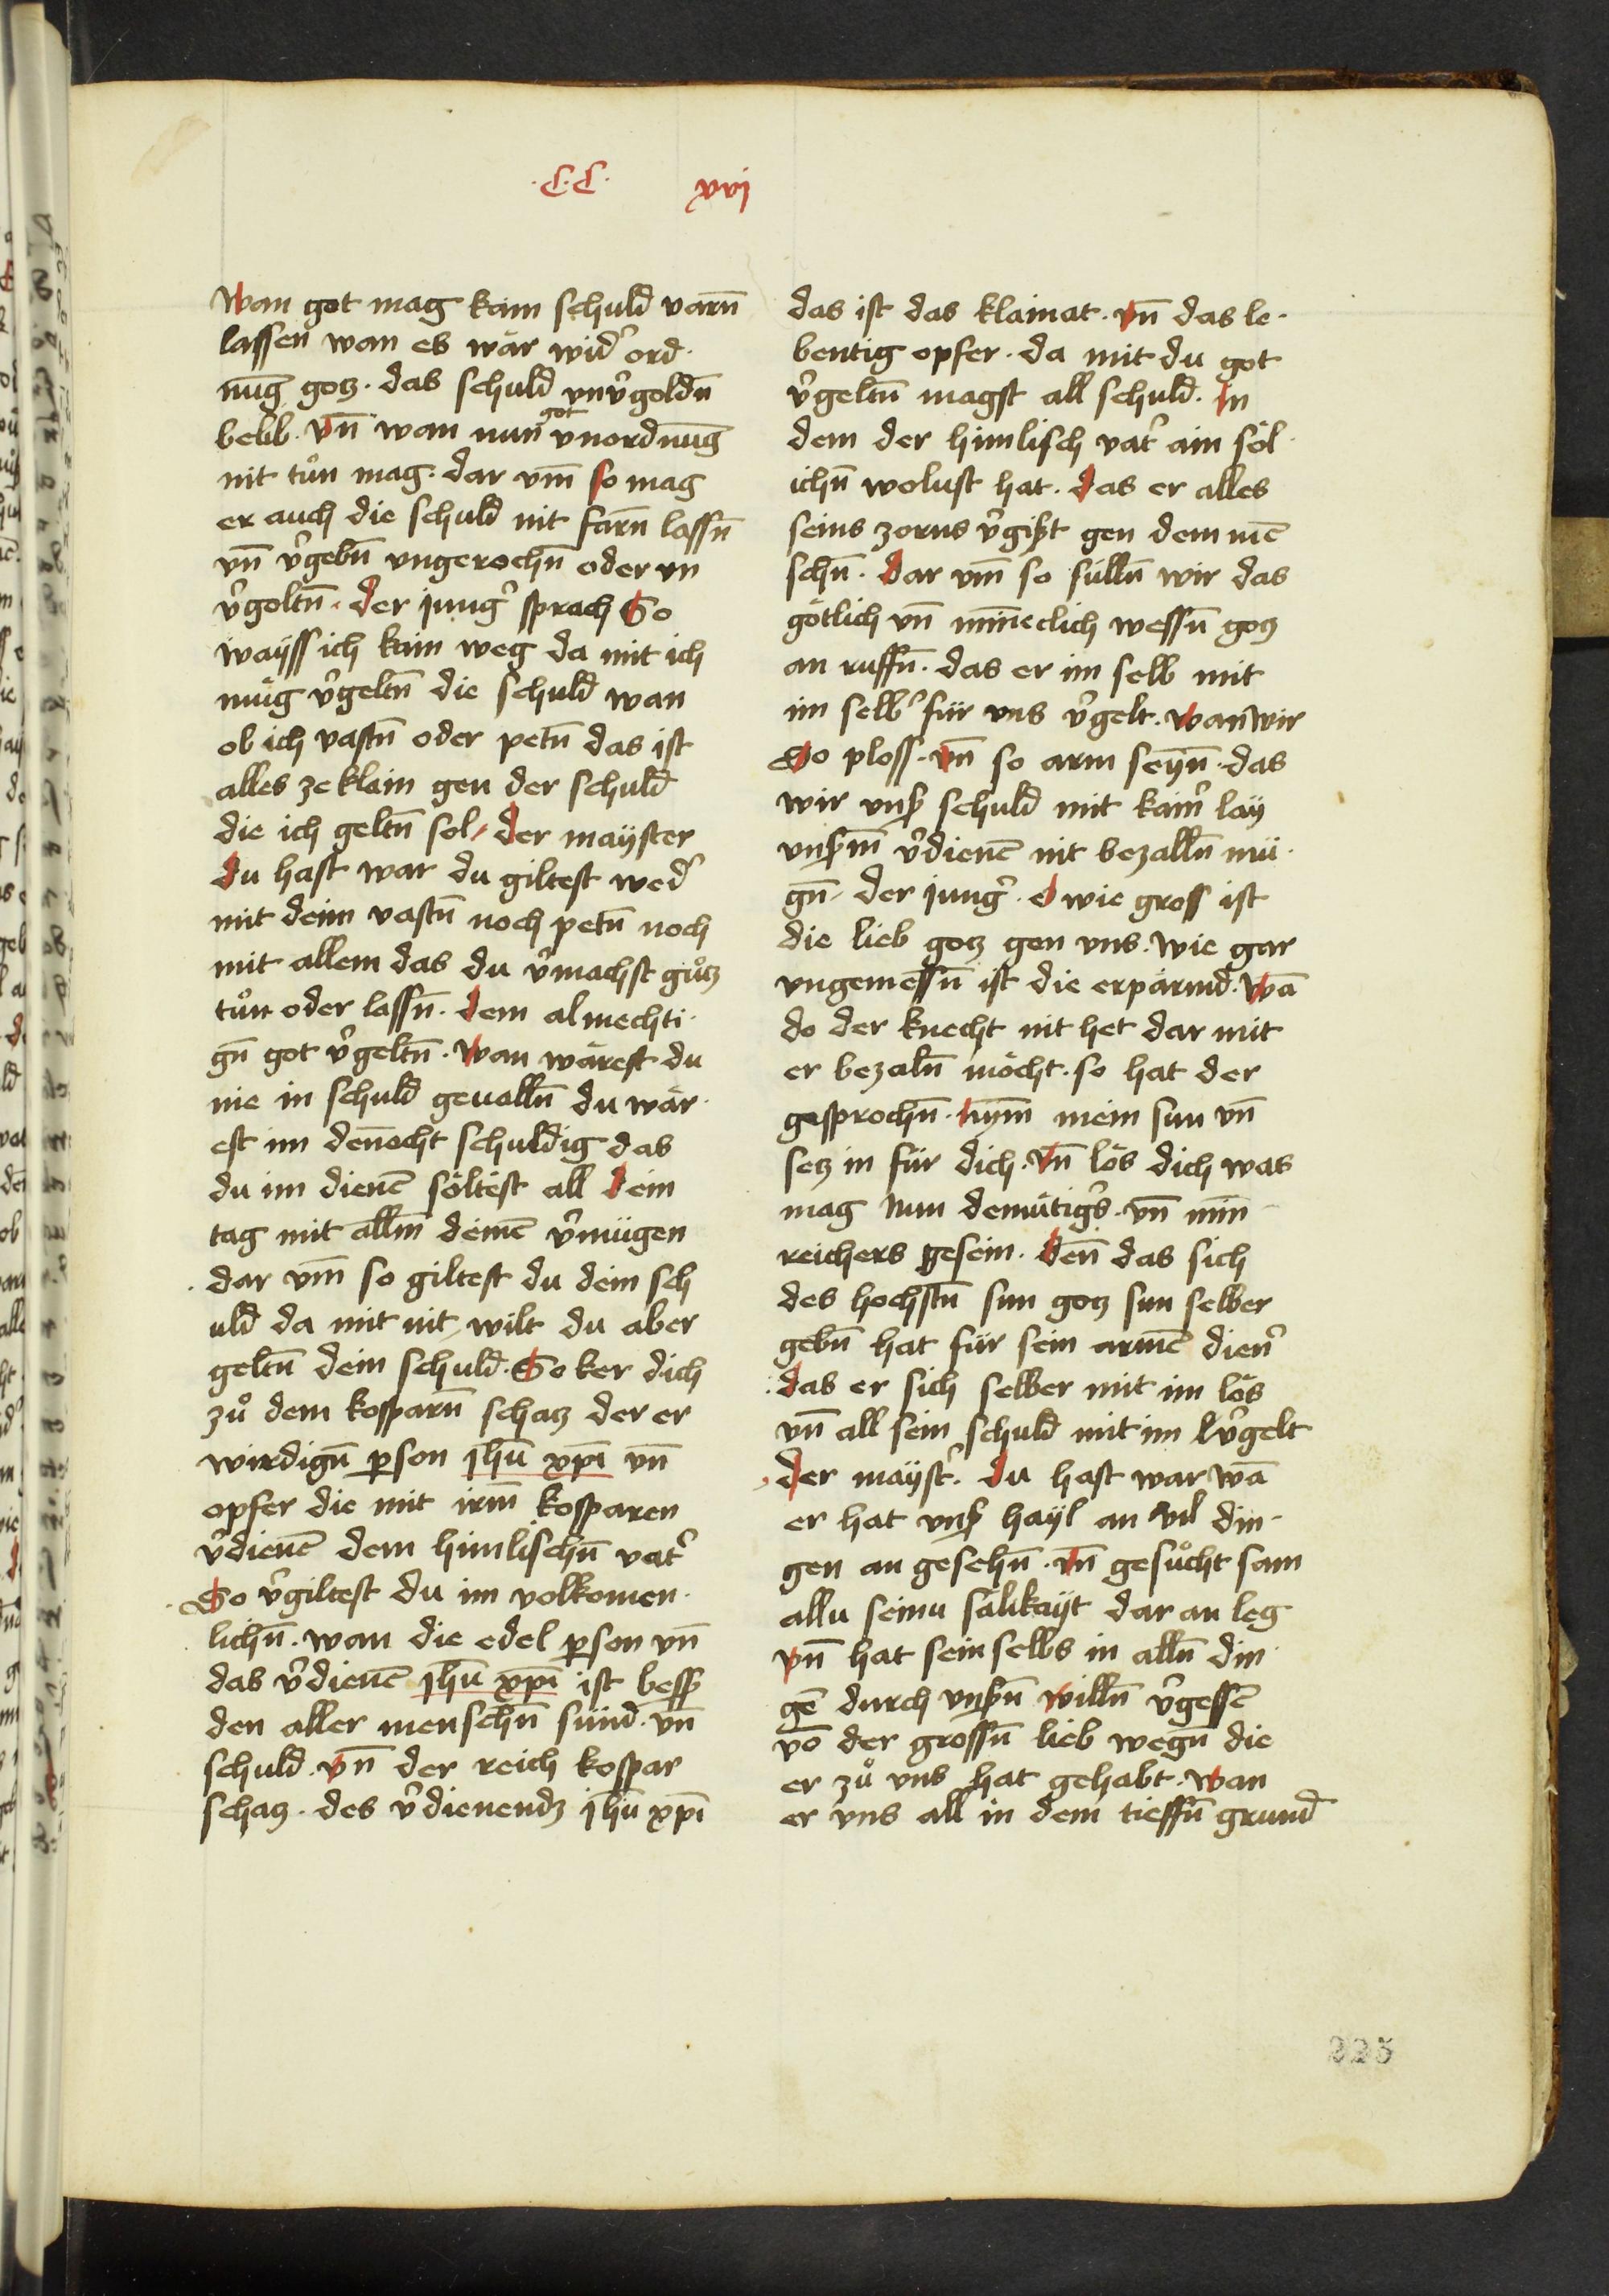 ·C·C· xvj
Wan got mag kain schuld varn̄
lassen wan es wär wid᷑ ord·
nūg gotz· das schuld vnv᷑goldn̄
beleib· Vn̄ wan nun got vnordnūg
nit tůn mag· dar vm̄ so mag
er auch die schuld nit farn̄ lassn̄
vn̄ v᷑gebn̄ vngerochn̄ oder vn
v᷑goltn̄· der jung᷑ sprach So
wayss ich kain weg da mit ich
mug v᷑geltn̄ die schuld wan
ob ich vastn̄ oder petn̄ das ist
alles ze klain gen der schuld
die ich geltn̄ sol· der mayster
du hast war du giltest wed᷑
mit deim vastn̄ noch petn̄ noch
mit allem das du v᷑machst gůtz
tůn oder lassn̄· dem almechti·
gn̄ got v᷑geltn̄· Wan wärest du
nie in schuld geualln̄ du wär·
est im den̄ocht schuldig das
du im dienē söltest all dein
tag mit allm̄ deinē v᷑mügen
dar vm̄ so giltest du dein sch
uld da mit nit wilt du aber
geltn̄ dein schuld· So ker dich
zů dem kosparn̄ schatz der er
wirdign̄ p̲son jhū xp̄ī vn̄
opfer die mit irm̄ kosparen
v᷑dienē dem himlischn̄ vat᷑
So v᷑giltest du im volkomen·
lichn̄· wan die edel p̲son vn̄
das v᷑dienē jhū xp̄ī ist bess᷑
den aller menschn̄ sünd· vn̄
schuld· Vn̄ der reich kospar
schatz· des v᷑dienendz jhū xp̄ī
das ist das klainat· Vn̄ das le·
bentig opfer· da mit du got
v᷑geltn̄ magst all schuld· In
dem der himlisch vat᷑ ain söl·
ichn̄ wolust hat· das er alles
seins zorns v᷑gißt gen dem mē
schn̄· Dar vm̄ so sülln̄ wir das
götlich vn̄ min̄eclich wessn̄ gotz
an ruffn̄· das er im selb mit
im selb᷑ für vns v᷑gelt· Wan wir
So ploss· Vn̄ so arm seyn̄· das
wir vns᷑ schuld mit kain᷑ lay
vns᷑m̄ v᷑dienē nit bezalln̄ mü·
gn̄· der jung᷑· O wie gross ist
die lieb gotz gen vns· wie gar
vngemessn̄ ist die erpärmd· Wā
do der knecht nit het dar mit
er bezaln̄ möcht· so hat der
gesprochn̄· Nym̄ mein sun vn̄
setz in für dich· Vn̄ lös dich was
mag nun demütig᷑s· vn̄ min̄
reichers gesein· Den̄ das sich
des hochstn̄ sun gotz sun selber
gebn̄ hat für sein armē dien᷑
das er sich selber mit im lös
vn̄ all sein schuld mit im v᷑gelt
der mayst᷑· du hast war wā
er hat vns᷑ hayl an vil din·
gen an gesehn̄· Vn̄ gesůcht sam
allu seinu sälikayt dar an leg
Vn̄ hat sein selbs in alln̄ din·
gē durch vns᷑n̄ willn̄ v᷑gessē
vō der grossn̄ lieb wegn̄ die
er zů vns hat gehabt· Wan
er vns all in dem tieffn̄ grund
225